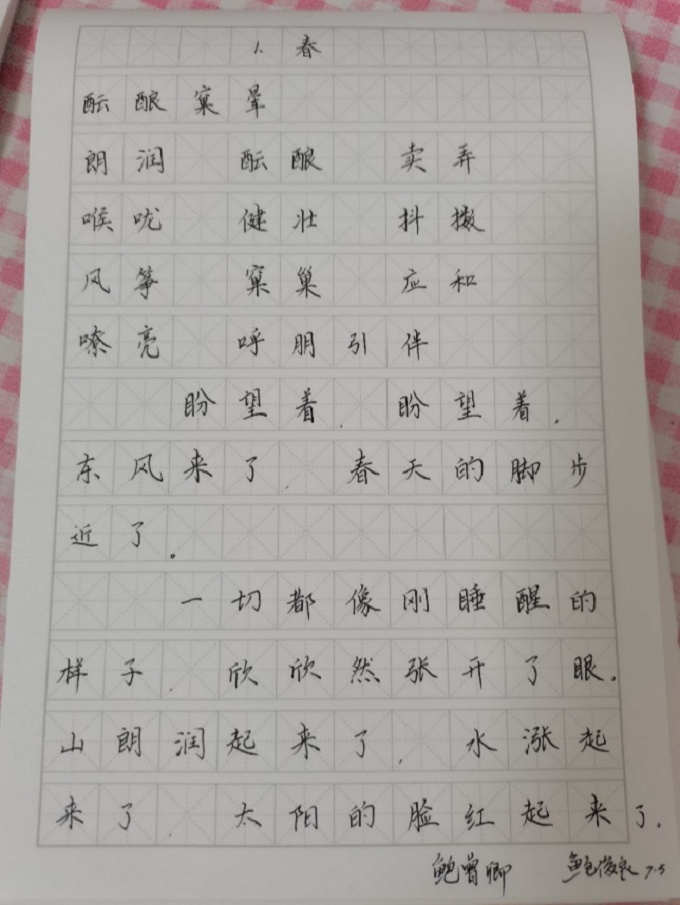 1. 春
酝 酿 窠 晕
朗 润 酝 酿 卖 弄
喉 咙 健 壮 抖 擞
风 筝 窠 巢 应 和
嘹 亮 呼 朋 引 伴
盼望着,盼望着,
东风来了,春天的脚步
近了。
一切都像刚睡醒的
样子,欣欣然张开了眼。
山朗润起来了,水涨起
来了,太阳的脸红起来了.
鲍曾卿 7.5